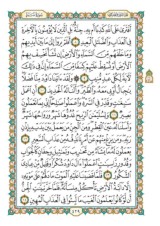 أَفْتَرَىٰ عَلَى ٱللَّهِ كَذِبًا أَم بِهِۦ جِنَّةٌۢ بَلِ ٱلَّذِينَ لَا يُؤْمِنُونَ بِٱلْءَاخِرَةِ
فِى ٱلْعَذَابِ وَٱلضَّلَٰلِ ٱلْبَعِيدِ ۝ أَفَلَمْ يَرَوْا۟ إِلَىٰ مَا بَيْنَ أَيْدِيهِمْ
وَمَا خَلْفَهُم مِّنَ ٱلسَّمَآءِ وَٱلْأَرْضِ إِن نَّشَأْ نَخْسِفْ بِهِمُ
ٱلْأَرْضَ أَوْ نُسْقِطْ عَلَيْهِمْ كِسَفًا مِّنَ ٱلسَّمَآءِ إِنَّ فِى ذَٰلِكَ
لَءَايَةً لِّكُلِّ عَبْدٍ مُّنِيبٍ ۝ وَلَقَدْ ءَاتَيْنَا دَاوُۥدَ مِنَّا فَضْلًا
يَٰجِبَالُ أَوِّبِى مَعَهُۥ وَٱلطَّيْرَ وَأَلَنَّا لَهُ ٱلْحَدِيدَ ۝ أَنِ ٱعْمَلْ
سَٰبِغَٰتٍ وَقَدِّرْ فِى ٱلسَّرْدِ وَٱعْمَلُوا۟ صَٰلِحًا إِنِّى بِمَا تَعْمَلُونَ
بَصِيرٌ ۝ وَلِسُلَيْمَٰنَ ٱلرِّيحَ غُدُوُّهَا شَهْرٌ وَرَوَاحُهَا شَهْرٌ
وَأَسَلْنَا لَهُۥ عَيْنَ ٱلْقِطْرِ وَمِنَ ٱلْجِنِّ مَن يَعْمَلُ بَيْنَ يَدَيْهِ بِإِذْنِ
رَبِّهِۦ وَمَن يَزِغْ مِنْهُمْ عَنْ أَمْرِنَا نُذِقْهُ مِنْ عَذَابِ ٱلسَّعِيرِ ۝
يَعْمَلُونَ لَهُۥ مَا يَشَآءُ مِن مَّحَٰرِيبَ وَتَمَٰثِيلَ وَجِفَانٍ كَٱلْجَوَابِ
وَقُدُورٍ رَّاسِيَٰتٍ ٱعْمَلُوٓا۟ ءَالَ دَاوُۥدَ شُكْرًا وَقَلِيلٌ مِّنْ عِبَادِىَ
ٱلشَّكُورُ ۝ فَلَمَّا قَضَيْنَا عَلَيْهِ ٱلْمَوْتَ مَا دَلَّهُمْ عَلَىٰ مَوْتِهِۦٓ
إِلَّا دَآبَّةُ ٱلْأَرْضِ تَأْكُلُ مِنسَأَتَهُۥ فَلَمَّا خَرَّ تَبَيَّنَتِ ٱلْجِنُّ
أَن لَّوْ كَانُوا۟ يَعْلَمُونَ ٱلْغَيْبَ مَا لَبِثُوا۟ فِى ٱلْعَذَابِ ٱلْمُهِينِ ۝
٤٢٩